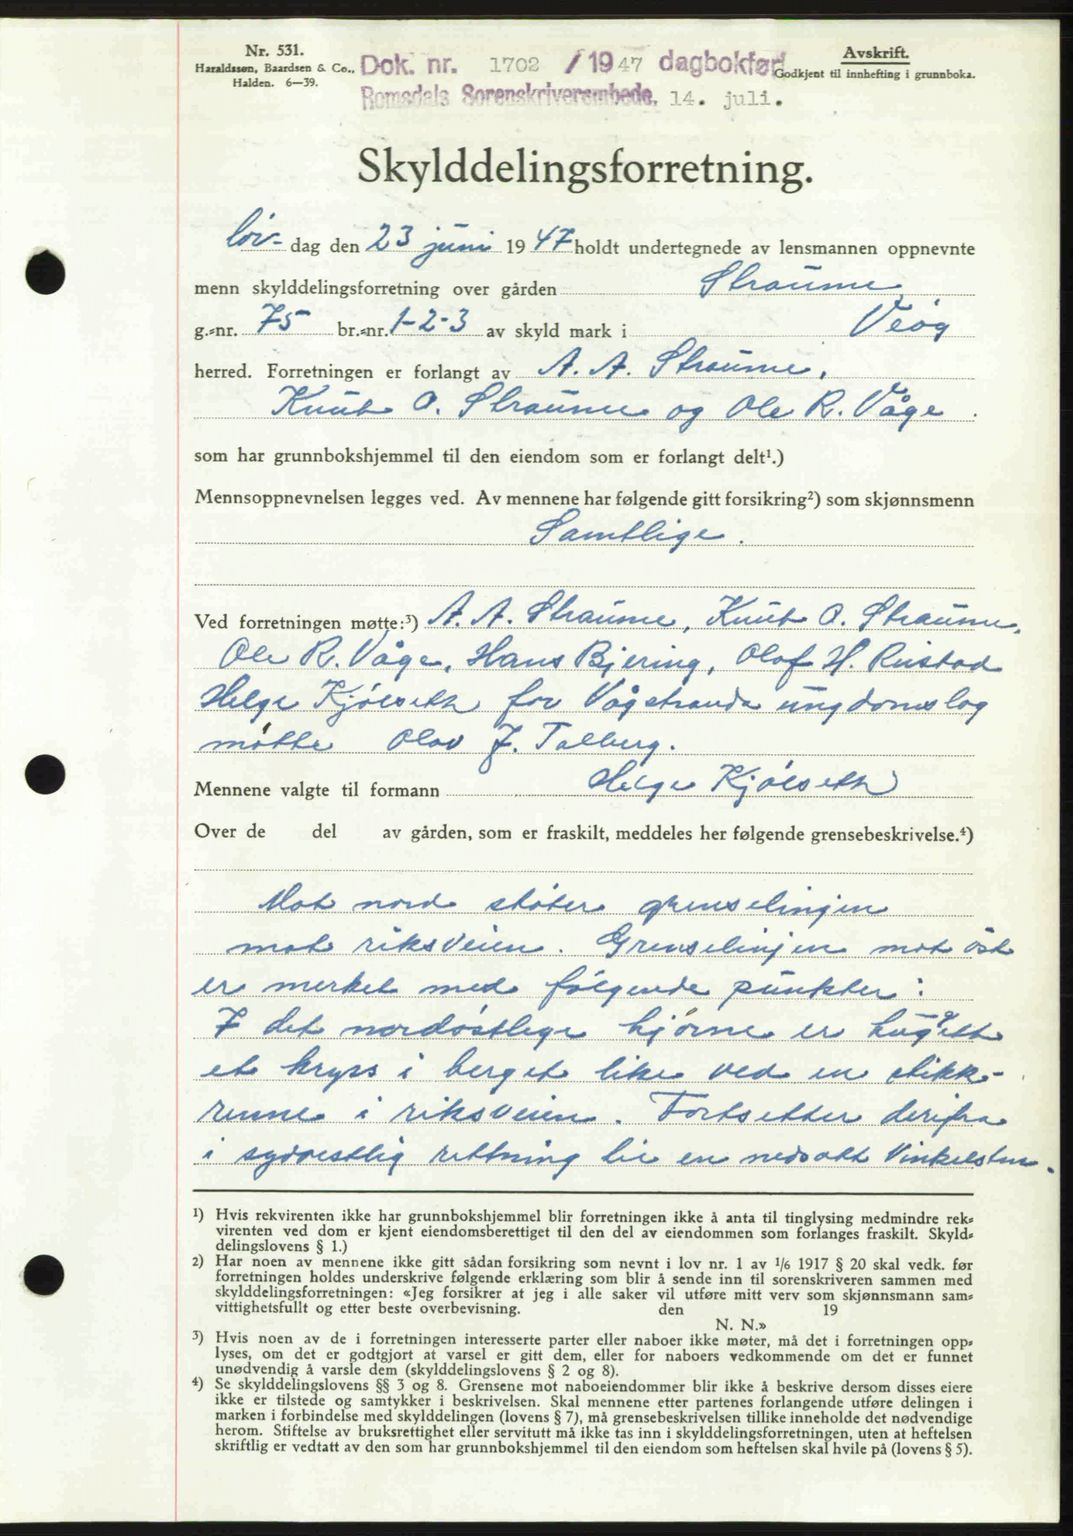 Nr. 531.
Haraldssøn, Baardsen & Co.,
Halden. 6—39.
Dok. nr. 1702 / 1947 dagbokført
Romsdals Sorenskriverembede, 14. juli.
Avskrift.
Godkjent til innhefting i grunnboka.
Skylddelingsforretning.
Lør- dag den 23 juni 1947 holdt undertegnede av lensmannen oppnevnte
menn skylddelingsforretning over gården Straume
g.-nr. 75 br.-nr. 1-2-3 av skyld mark i Veøy
herred. Forretningen er forlangt av A. A. Straume,
Knut O. Straume og Ole R. Våge.
som har grunnbokshjemmel til den eiendom som er forlangt delt¹.)
Mennsoppnevnelsen legges ved. Av mennene har følgende gitt forsikring²) som skjønnsmenn
Samtlige.
Ved forretningen møtte:³) A. A. Straume, Knut O. Straume,
Ole R. Våge, Hans Bjering, Olaf H. Rustad
Helge Kjølseth for Vågstranda ungdomslag
møtte Olav J. Talberg.
Mennene valgte til formann Helge Kjølseth
Over de del av gården, som er fraskilt, meddeles her følgende grensebeskrivelse.⁴)
Mot nord støter grenselinjen
mot riksveien. Grenselinjen mot øst
er merket med følgende punkter:
I det nordøstlege hjørne er hugget
et kryss i berget like ved en stikk-
renne i riksveien. Fortsetter derifra
i sydvestlig rettning til en nedsatt Vinkelsten.
¹) Hvis rekvirenten ikke har grunnbokshjemmel blir forretningen ikke å anta til tinglysing medmindre rek-
virenten ved dom er kjent eiendomsberettiget til den del av eiendommen som forlanges fraskilt. Skyld-
delingslovens § 1.)
²) Har noen av mennene ikke gitt sådan forsikring som nevnt i lov nr. 1 av 1/6 1917 § 20 skal vedk. før
forretningen holdes underskrive følgende erklæring som blir å sende inn til sorenskriveren sammen med
skylddelingsforretningen: «Jeg forsikrer at jeg i alle saker vil utføre mitt verv som skjønnsmann sam-
vittighetsfullt og etter beste overbevisning. den 19
N. N.»
³) Hvis noen av de i forretningen interesserte parter eller naboer ikke møter, må det i forretningen opp-
lyses, om det er godtgjort at varsel er gitt dem, eller for naboers vedkommende om det er funnet
unødvendig å varsle dem (skylddelingslovens § 2 og 8).
⁴) Se skylddelingslovens §§ 3 og 8. Grensene mot naboeiendommer blir ikke å beskrive dersom disses eiere
ikke er tilstede og samtykker i beskrivelsen. Skal mennene etter partenes forlangende utføre delingen i
marken i forbindelse med skylddelingen (lovens § 7), må grensebeskrivelsen tillike inneholde det nødvendige
herom. Stiftelse av bruksrettighet eller servitutt må ikke tas inn i skylddelingsforretningen, uten at heftelsen
skriftlig er vedtatt av den som har grunnbokshjemmel til den eiendom som heftelsen skal hvile på (lovens § 5).